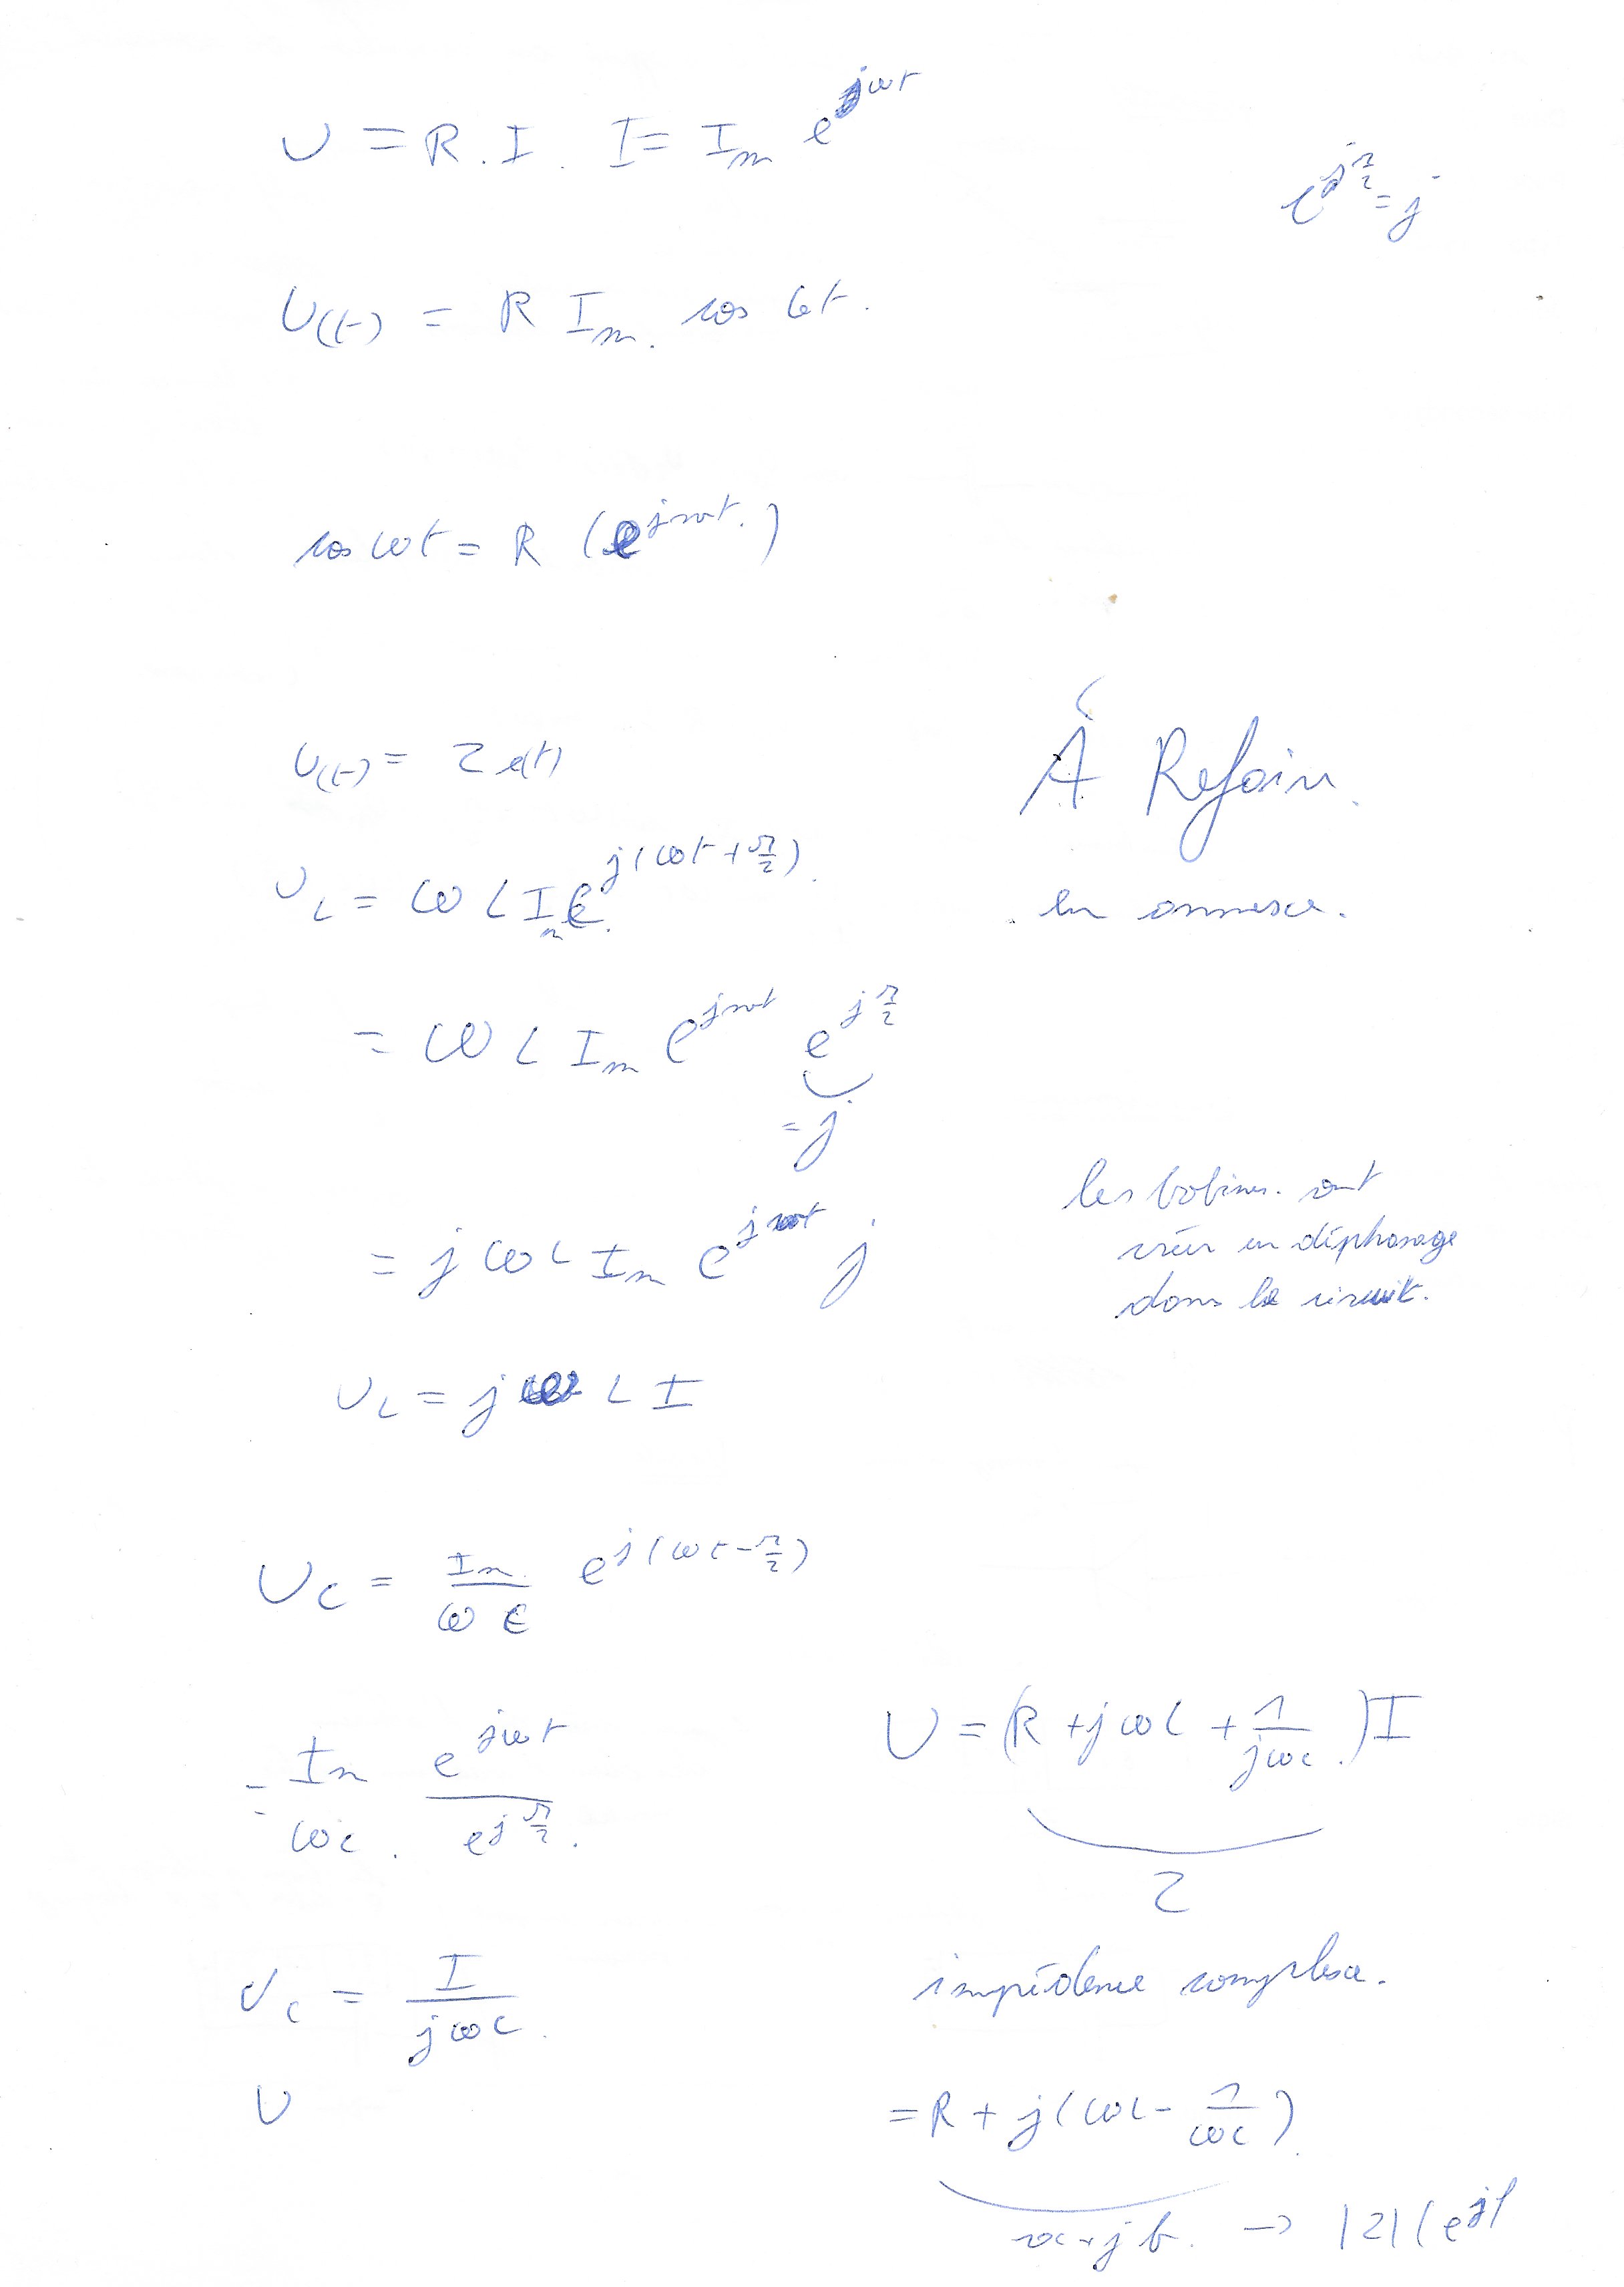 U = R . I . I = I_m e^{jωt}
e^{j π/2} = j
U(t) = R I_m . cos ωt .
cos ωt = R (e^{jωt} . )
U(t) = Z i(t)
À Refaire .
U_L = ω L I_m e^{j(ωt + π/2)} .
en annexe .
= ω L I_m e^{jωt} e^{j π/2}
= j
les bobines . vont
créer un déphasage
dans le circuit .
= j ω L I_m e^{jωt} j
U_L = j ω L I
U_C = I_m / ω C e^{j(ωt - π/2)}
= I_m / ωC . e^{jωt} / e^{j π/2} .
U = (R + jωL + 1 / jωC . ) I
Z
impédence complexe .
U_C = I / jωC .
U
= R + j(ωL - 1 / ωC )
a + j b . → |Z| ( e^{j